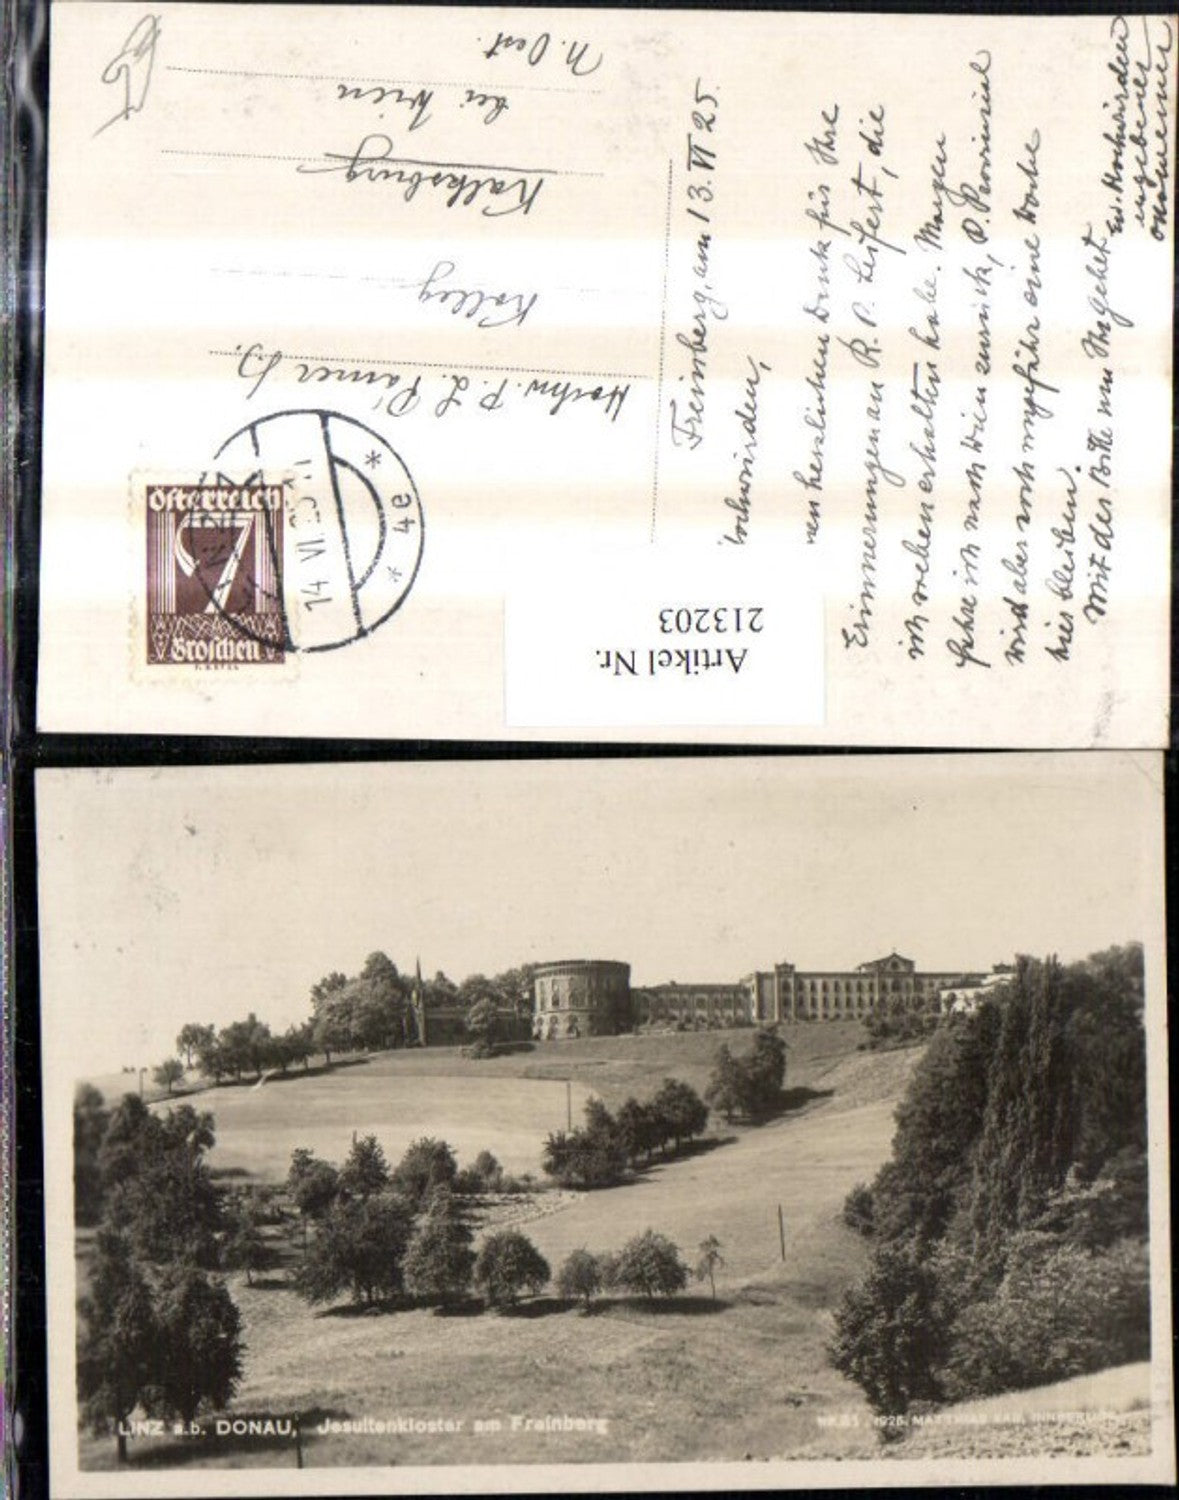 Freinberg, am 13. VI 25.
Hochwürden,
herzlichen Dank für Ihre
Erinnerungen an R. P. Seifert, die
ich soeben erhalten habe. Morgen
fahre ich nach Wien zurück, P. Provinzial
wird aber noch ungefähr eine Woche
hier bleiben.
Mit der Bitte um Ihr Gebet
Ew. Hochwürden
ergebener
Hochw. P. L.
Kolleg
Kalksburg
bei Wien
N. Oest.
Österreich
7
Groschen
14 VI 25
* 4e *
Artikel Nr.
213203
LINZ a.d. DONAU, Jesuitenkloster am Freinberg